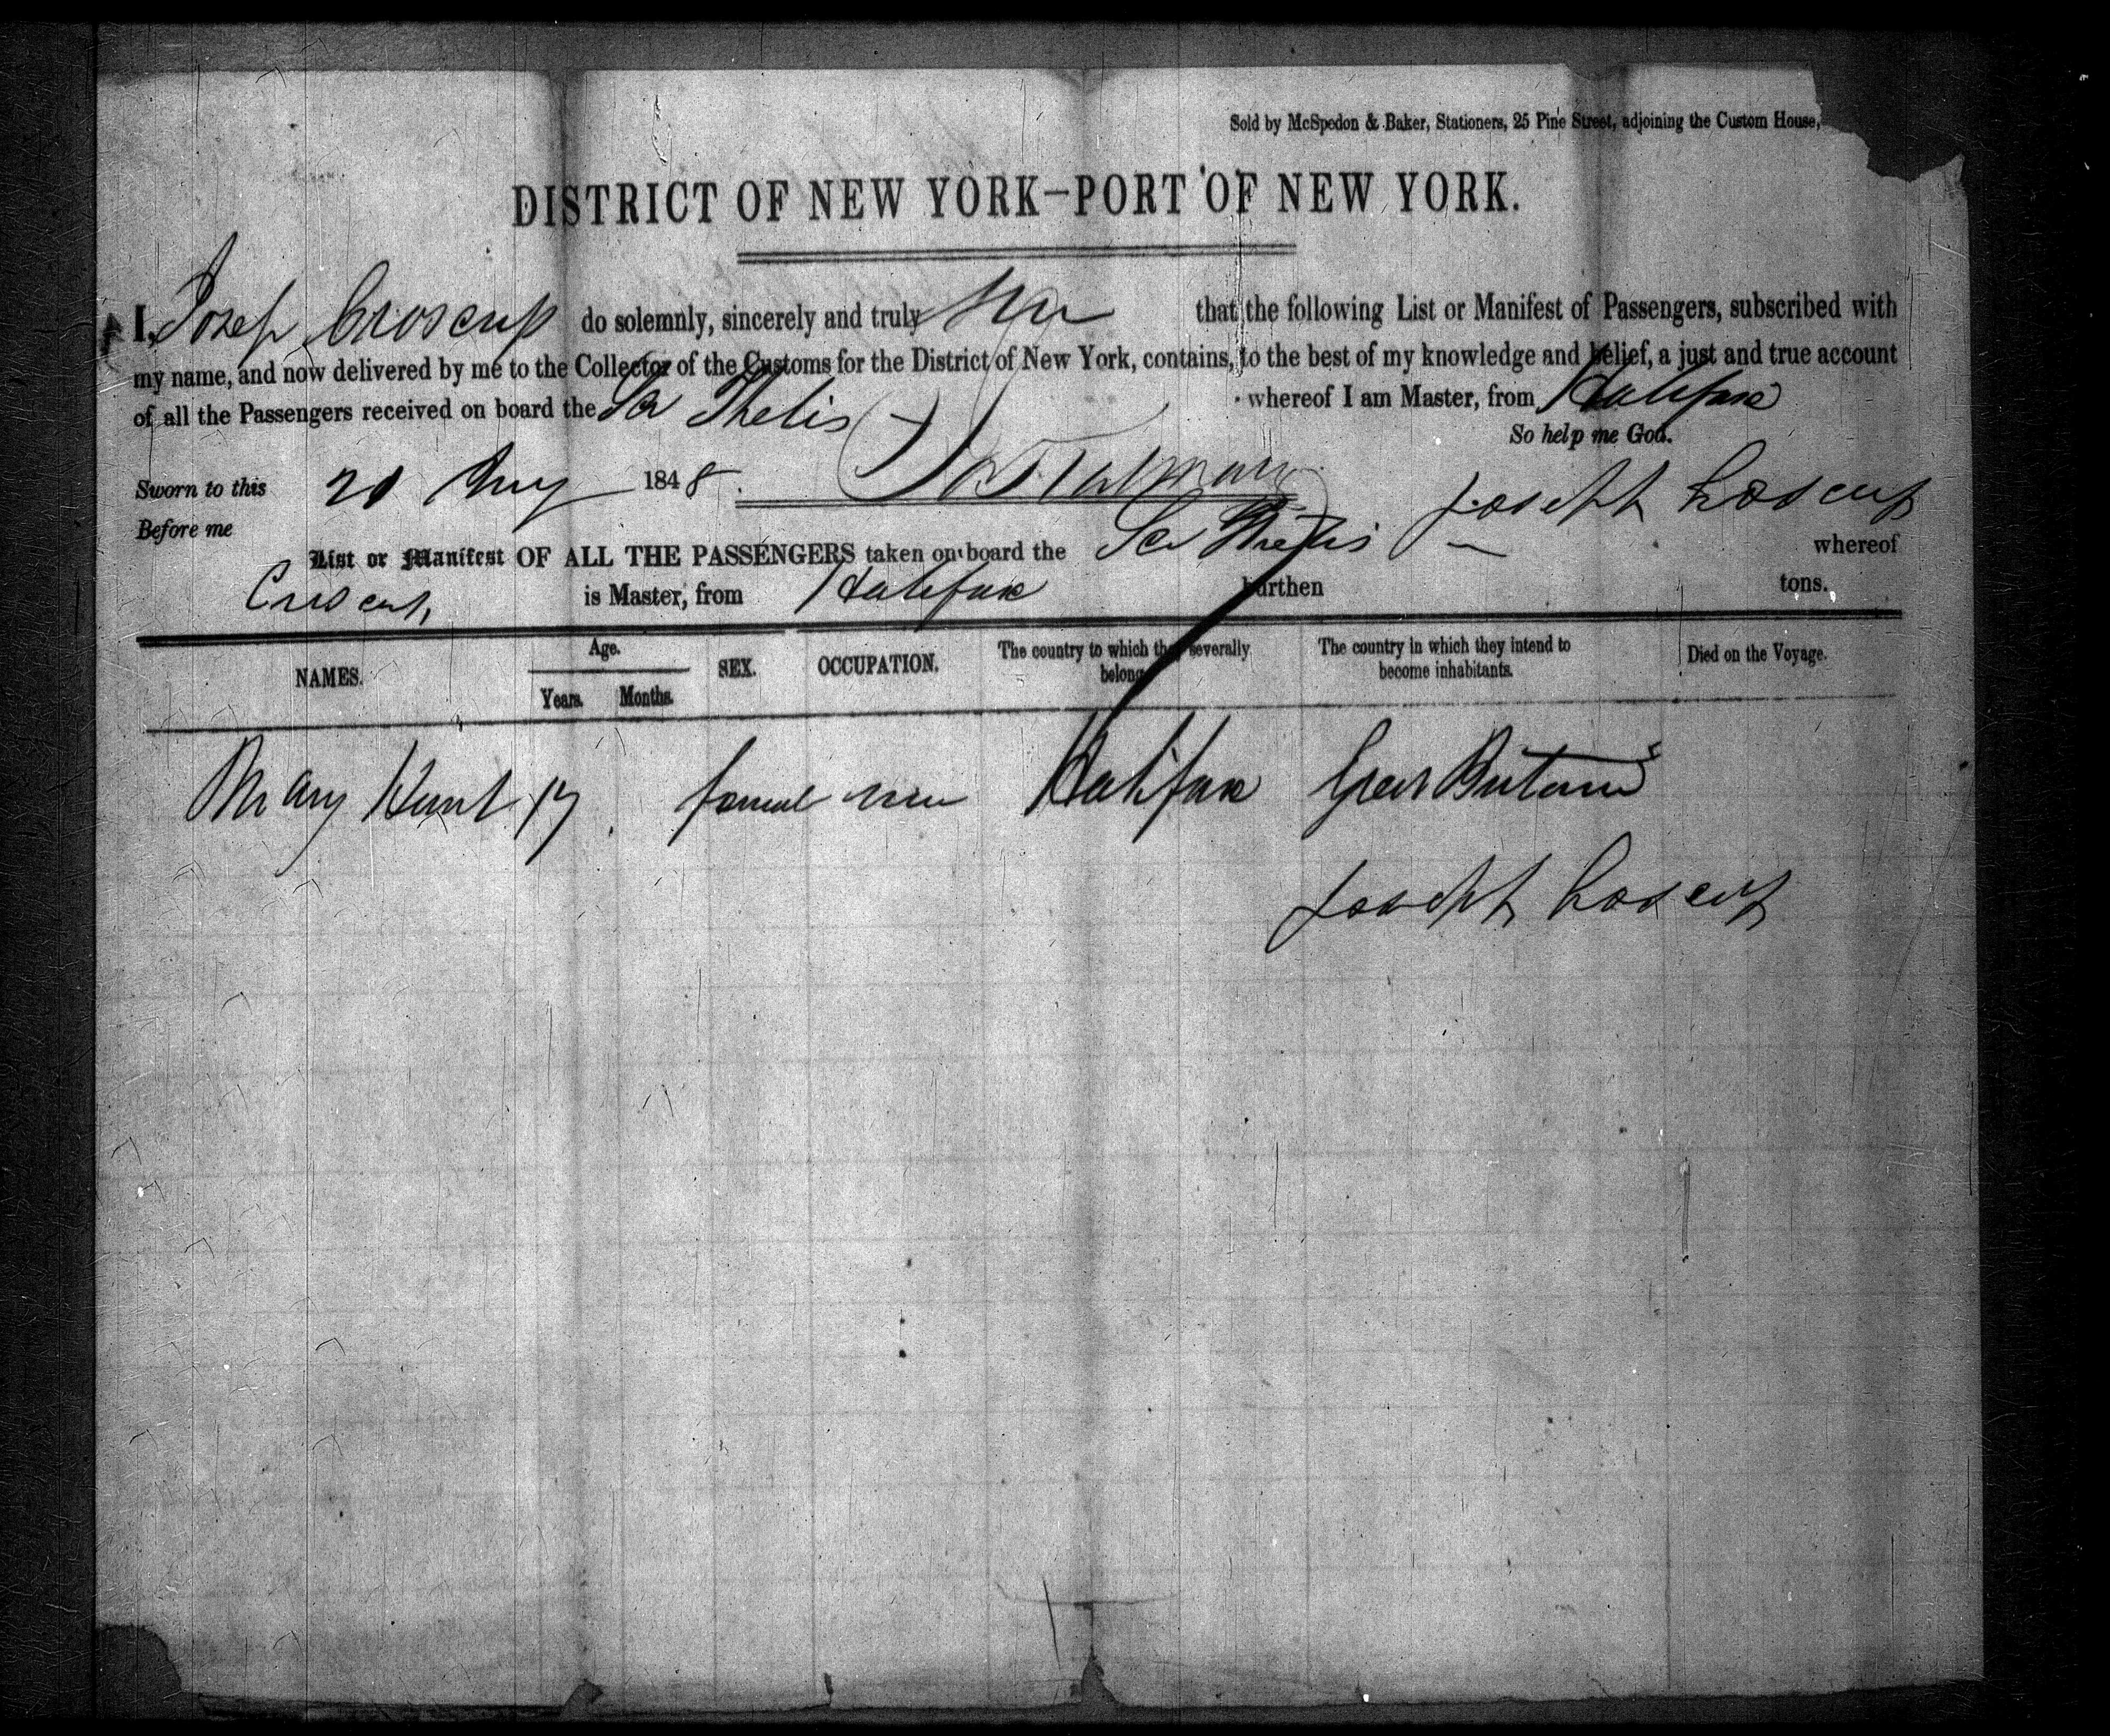 Sold by McSpedon & Baker, Stationers, 25 Pine Street, adjoining the Custom House,
DISTRICT OF NEW YORK—PORT OF NEW YORK.
I, Josep Croscup do solemnly, sincerely and truly that the following List or Manifest of Passengers, subscribed with
my name, and now delivered by me to the Collector of the Customs for the District of New York, contains, to the best of my knowledge and belief, a just and true account
of all the Passengers received on board the Scr Thetis whereof I am Master, from Halifax
So help me God.
Sworn to this 21 Aug 1848. Joseph Croscup
Before me
List or Manifest OF ALL THE PASSENGERS taken on board the Scr Thetis whereof
Croscup is Master, from Halifax burthen tons.
NAMES. Age. Years. Months. SEX. OCCUPATION. The country to which they severally belong. The country in which they intend to become inhabitants. Died on the Voyage.
Mary Hunt 17 femal Halifax Great Britain
Joseph Croscup